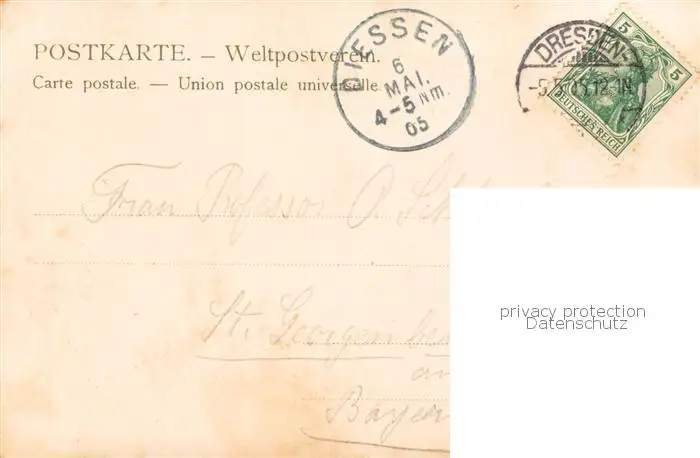 POSTKARTE. – Weltpostverein.
Carte postale. — Union postale universelle.
DIESSEN
6
MAI.
4-5 Nm.
05
DRESDEN-
5
5
DEUTSCHES REICH
Frau Professor P. Sch
St. Georgen bei
an
Bayer
privacy protection
Datenschutz